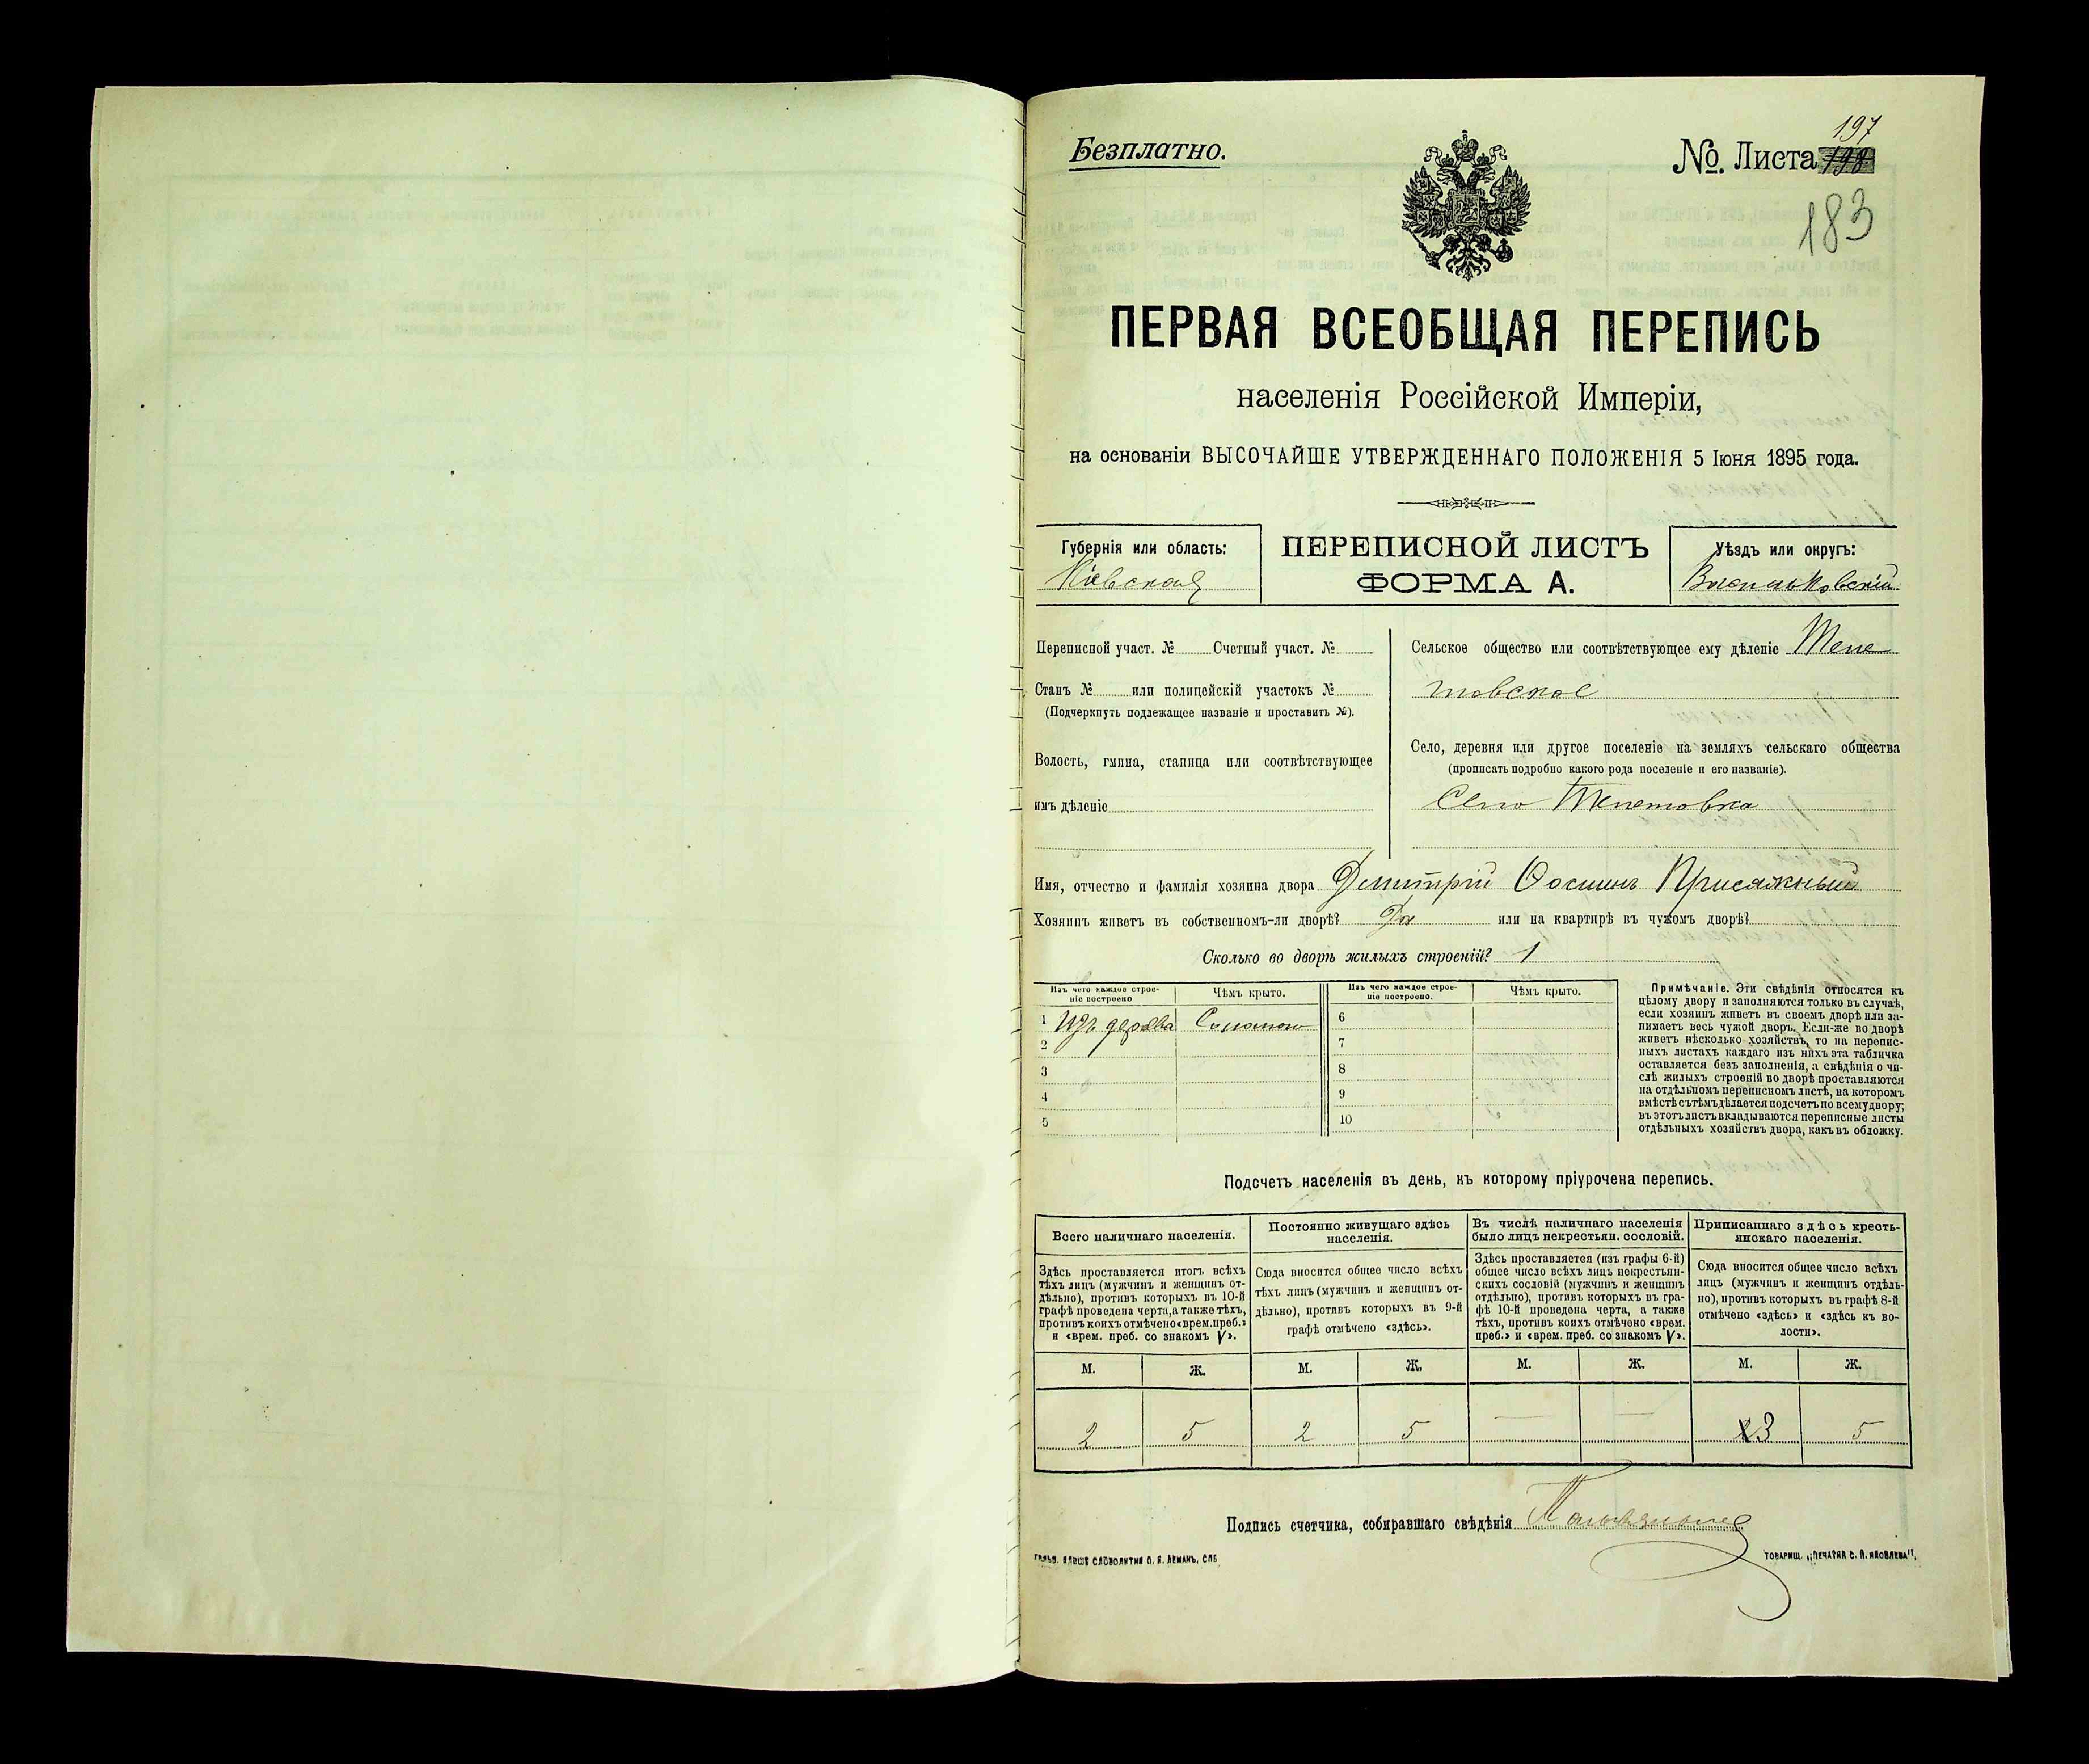 Безплатно.
№. Листа 198
197
183
ПЕРВАЯ ВСЕОБЩАЯ ПЕРЕПИСЬ
населенія Россійской Имперіи,
на основаніи ВЫСОЧАЙШЕ УТВЕРЖДЕННАГО ПОЛОЖЕНІЯ 5 Іюня 1895 года.
Губернія или область:
Кіевская
ПЕРЕПИСНОЙ ЛИСТЪ
ФОРМА А.
Уѣздъ или округъ:
Васильковскій
Переписной участ. № Счетный участ. №
Станъ № или полицейскій участокъ №
(Подчеркнуть подлежащее названіе и проставить №).
Волость, гмина, станица или соотвѣтствующее
имъ дѣленіе
Сельское общество или соотвѣтствующее ему дѣленіе Тепе
товское
Село, деревня или другое поселеніе на земляхъ сельскаго общества
(прописать подробно какого рода поселеніе и его названіе).
Село Тепетовка
Имя, отчество и фамилія хозяина двора Димитрій Присяжный
Хозяинъ живетъ въ собственномъ-ли дворѣ? Да или на квартирѣ въ чужомъ дворѣ?
Сколько во дворѣ жилыхъ строеній? 1
Изъ чего каждое строе-
ніе построено
Чѣмъ крыто.
Изъ чего каждое строе-
ніе построено.
Чѣмъ крыто.
1 Изъ дерева Соломою
2
3
4
5
6
7
8
9
10
Примѣчаніе. Эти свѣдѣнія относятся къ
цѣлому двору и заполняются только въ случаѣ,
если хозяинъ живетъ въ своемъ дворѣ или за-
нимаетъ весь чужой дворъ. Если-же во дворѣ
живетъ нѣсколько хозяйствъ, то на перепис-
ныхъ листахъ каждаго изъ нихъ эта табличка
оставляется безъ заполненія, а свѣдѣнія о чи-
слѣ жилыхъ строеній во дворѣ проставляются
на отдѣльномъ переписномъ листѣ, на которомъ
вмѣстѣ съ тѣмъ дѣлается подсчетъ по всему двору;
въ этотъ листъ вкладываются переписные листы
отдѣльныхъ хозяйствъ двора, какъ въ обложку.
Подсчетъ населенія въ день, къ которому пріурочена перепись.
Всего наличнаго населенія.
Здѣсь проставляется итогъ всѣхъ
тѣхъ лицъ (мужчинъ и женщинъ от-
дѣльно), противъ которыхъ въ 10-й
графѣ проведена черта, а также тѣхъ,
противъ коихъ отмѣчено «врем. преб.»
и «врем. преб. со знакомъ V».
Постоянно живущаго здѣсь
населенія.
Сюда вносится общее число всѣхъ
тѣхъ лицъ (мужчинъ и женщинъ от-
дѣльно), противъ которыхъ въ 9-й
графѣ отмѣчено «здѣсь».
Въ числѣ наличнаго населенія
было лицъ некрестьян. сословій.
Здѣсь проставляется (изъ графы 6-й)
общее число всѣхъ лицъ некрестьян-
скихъ сословій (мужчинъ и женщинъ
отдѣльно), противъ которыхъ въ гра-
фѣ 10-й проведена черта, а также
тѣхъ, противъ коихъ отмѣчено «врем.
преб.» и «врем. преб. со знакомъ V».
Приписаннаго здѣсь кресть-
янскаго населенія.
Сюда вносится общее число всѣхъ
лицъ (мужчинъ и женщинъ отдѣль-
но), противъ которыхъ въ графѣ 8-й
отмѣчено «здѣсь» и «здѣсь къ во-
лости».
М. Ж. М. Ж. М. Ж. М. Ж.
2 5 2 5 — — 3 5
Подпись счетчика, собиравшаго свѣдѣнія
СЛОВОЛИТНЯ О. И. ЛЕМАНЪ, СПБ
ТОВАРИЩ. „ПЕЧАТНЯ С. П. ЯКОВЛЕВА".